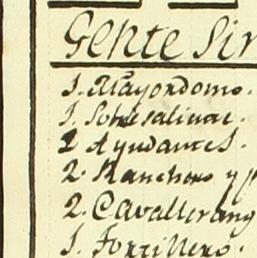 Gente Sir
1. Mayordomo.
1. Sobresaliente.
2 Ayudantes.
2. Ranchero y p
2. Cavallerang
1. Fortillero.